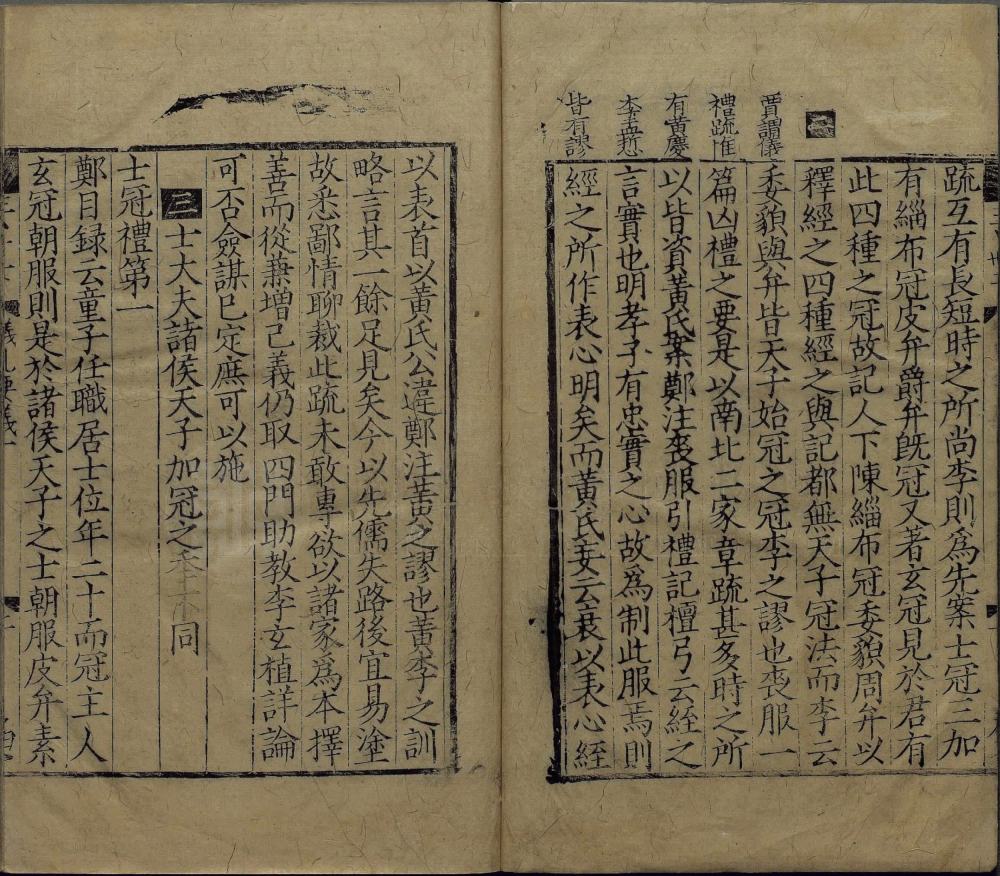 二
賈謂儀
禮疏惟
有黃慶
李孟悊
皆有謬
疏互有長短時之所尚李則爲先案士冠三加
有緇布冠皮弁爵弁旣冠又著玄冠見於君有
此四種之冠故記人下陳緇布冠委貌周弁以
釋經之四種經之與記都無天子冠法而李云
委貌與弁皆天子始冠之冠李之謬也喪服一
篇凶禮之要是以南北二家章疏甚多時之所
以皆資黃氏案鄭注喪服引禮記檀弓云絰之
言實也明孝子有忠實之心故爲制此服焉則
經之所作表心明矣而黃氏妄云衰以表心絰
以表首以黃氏公違鄭注黃之謬也黃李之訓
略言其一餘足見矣今以先儒失路後宜易塗
故悉鄙情聊裁此疏未敢專欲以諸家爲本擇
善而從兼增己義仍取四門助教李玄植詳論
可否僉謀已定庶可以施
三士大夫諸侯天子加冠之年不同
士冠禮第一
鄭目録云童子任職居士位年二十而冠主人
玄冠朝服則是於諸侯天子之士朝服皮弁素